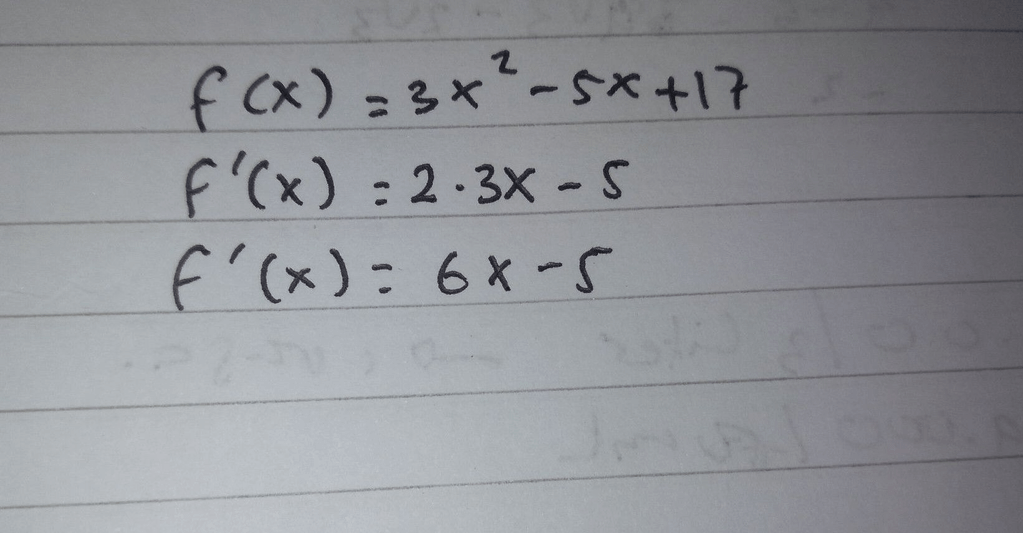 f(x) = 3x² - 5x + 17
f'(x) = 2·3x - 5
f'(x) = 6x - 5